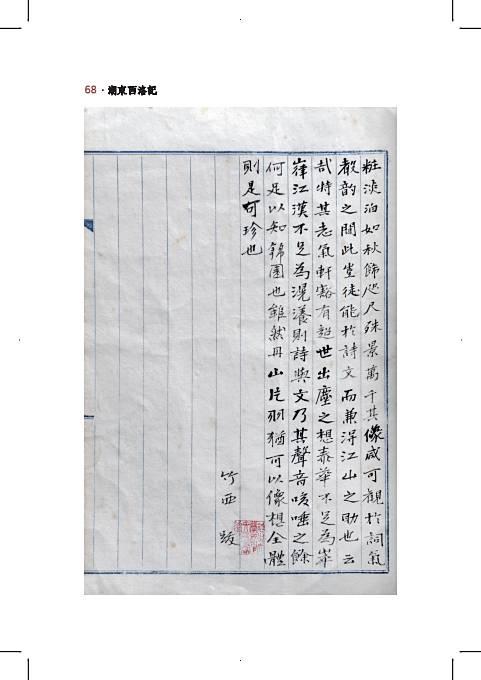 68 · 湖東西洛記
粧淡泊如秋飾咫尺殊景萬千其像咸可觀於詞氣
聲韵之間此豈徒能於詩文而兼得江山之助也云
哉特其老氣軒豁有超世出塵之想泰華不足為崒
嵂江漢不足為滉瀁則詩與文乃其聲音咳唾之餘
何足以知錦園也雖然丹山片羽猶可以像想全體
則是可珍也
竹西 跋